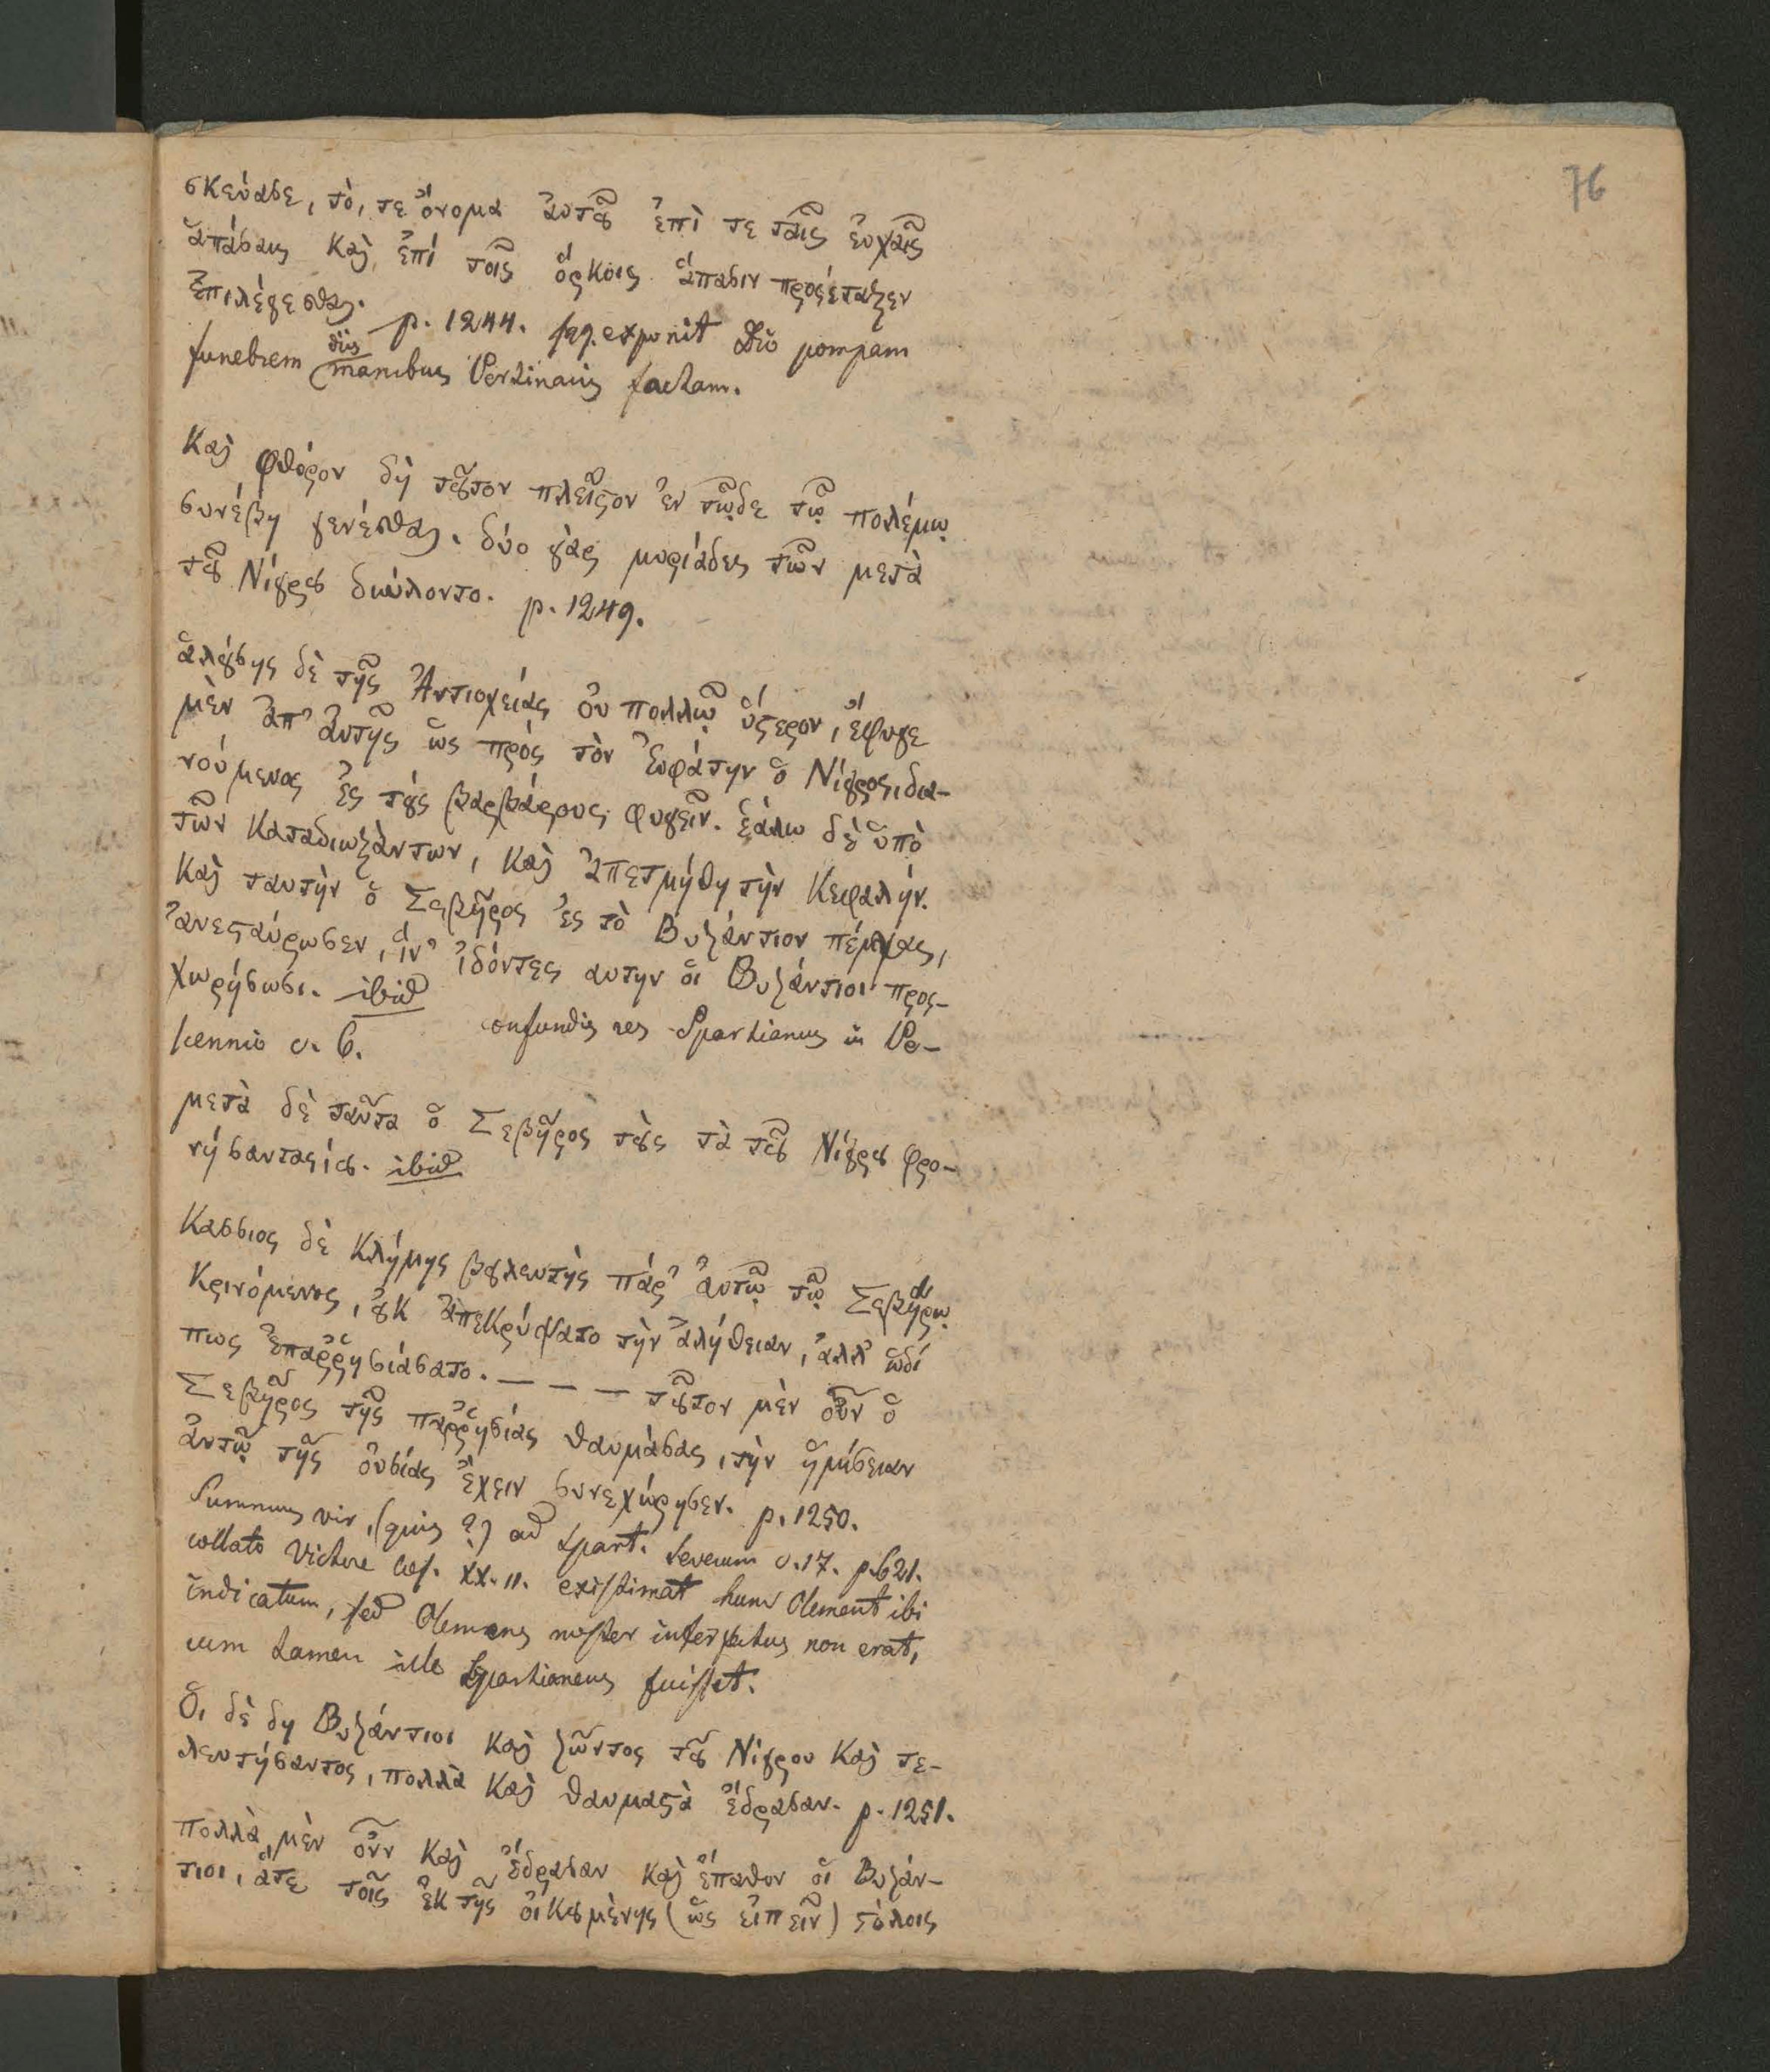 76
σκεύασε, τό, τε ὄνομα ἀυτοῦ ἐπὶ τε ταῖς ἐυχαῖς
ἁπάσαις καὶ ἐπί τοῖς ὅρκοις ἅπασιν προςέταξεν
ἐπιλέγεσθαι. p. 1244. sqq. exponit Dio pompam
funebrem diis manibus Pertinacis factam.
Καὶ φθόρον δὴ τοῦτον πλεῖστον ἐν τῷδε τῷ πολέμῳ
συνέβη γενέσθαι. δύο γὰρ μυριάδες τῶν μετὰ
τοῦ Νίγρου διώλοντο. p. 1249.
ἁλούσης δὲ τῆς Ἀντιοχείας ὀυ πολλῷ ὕστερον, ἔφυγε
μὲν ἀπ' ἀυτῆς ὡς πρὸς τὸν Ἐυφάτην ὁ Νίγρος, δια-
νούμενος ἐς τοὺς βαρβάρους φυγεῖν. ἑάλω δὲ ὑπὸ
τῶν καταδιωξάντων, καὶ ἀπετμήθη τὴν κεφαλήν.
καὶ ταυτὴν ὁ Σεβῆρος ἐς τὸ Βυζάντιον πέμψας,
ἀνεσταύρωσεν, ἵν' ἰδόντες αυτην ὁι Βυζάντιοι προς-
χωρήσωσι. ibid confundis res Spartianus in Pe-
scennio c. 6.
μετὰ δὲ ταῦτα ὁ Σεβῆρος τοὺς τὰ τοῦ Νίγρου φρο-
νήσαντας ί ου. ibid
Κασσιος δὲ Κλήμης βουλευτὴς πάρ' ἀυτῷ τῷ Σεβήρῳ
κρινόμενος, οὐκ ἀπεκρύψατο τὴν ἀλήθειαν, ἀλλ' ὡδί
πως ἐπαῤῥησιάσατο. — — — τοῦτον μὲν οὖν ὁ
Σεβῆρος τῆς παῤῥησίας θαυμάσας, τὴν ἡμίσειαν
ἀυτῷ τῆς ὀυσίας ἔχειν συνεχώρησεν. p. 1250.
Summus vir, (quis?) ad Spart. Severum c. 17. p. 621.
collato Victore Caes. XX. 11. existimat hunc Clement ibi
indicatum, sed Clemens noster interfectus non erat,
cum tamen ille Spartianeus fuisset.
Ὁι δὲ δη Βυζάντιοι καὶ ζῶντος τοῦ Νίγρου καὶ τε-
λευτήσαντος, πολλὰ καὶ θαυμαστὰ ἔδρασαν. p. 1251.
πολλὰ μὲν οὖν καὶ ἔδρασαν καὶ ἔπαθον ὁι Βυζάν-
τιοι, ἅτε τοῖς ἐκ τῆς ὀικουμὲνης (ὡς ἐιπεῖν) στόλοις